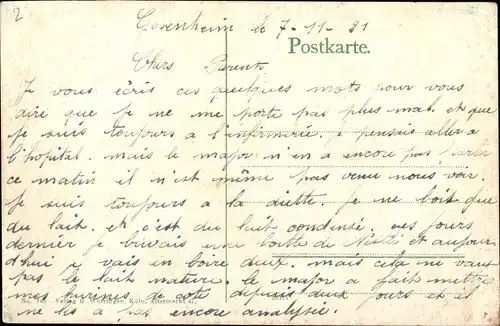 2
Essenheim le 7-11-21
Postkarte.
Chers Parents
Je vous écris ces quelques mots pour vous
dire que je ne me porte pas plus mal. et que
je suis toujours a l'infirmerie. je pensais aller a
l'hopital. mais le major n'en a encore pas parler
ce matin il n'est même pas venu nous voir.
Je suis toujours a la diette. je ne bois que
du lait. et c'est du lait condensé. ces jours
dernier je buvais une boitte de et aujour
d'hui je vais en boire deux. mais cela ne vaut
pas le lait nature. le major a fait mettre
mes urines de coté depuis deux jours et il
ne les a pas encore analysée.
Verlag Köln,